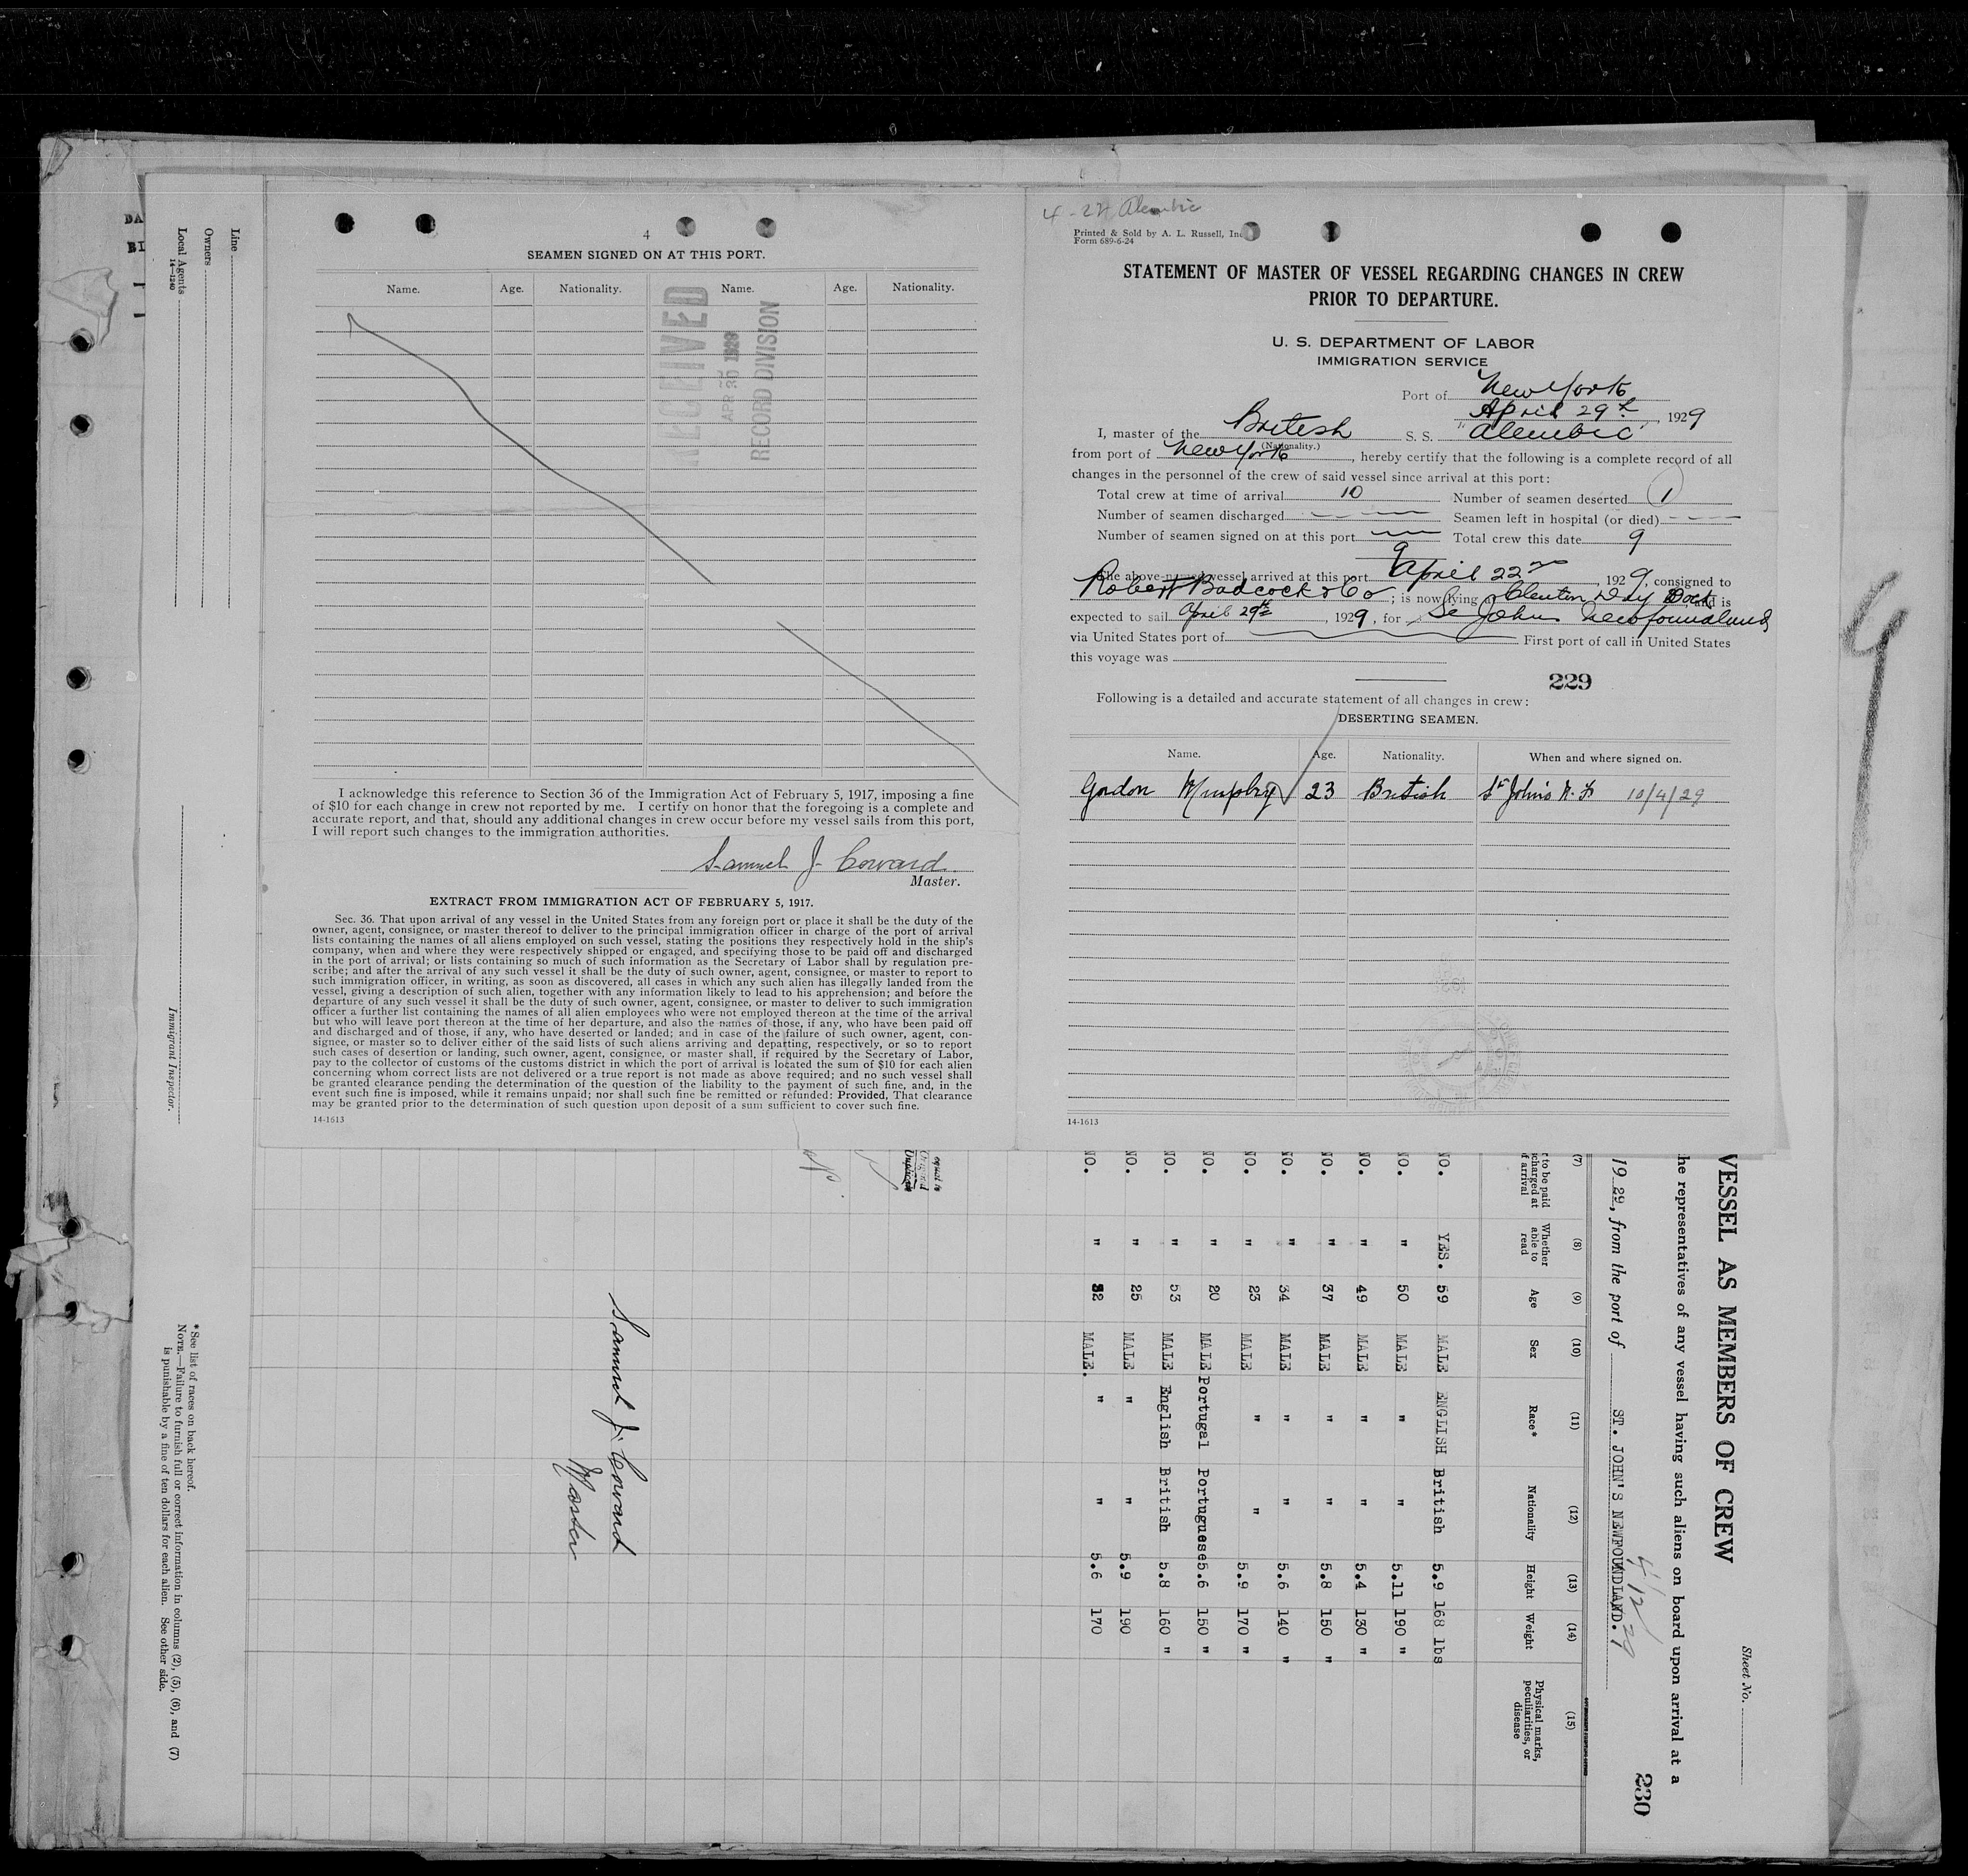 4
SEAMEN SIGNED ON AT THIS PORT.
Name. Age. Nationality. Name. Age. Nationality.
RECEIVED
APR 30 1929
RECORD DIVISION
I acknowledge this reference to Section 36 of the Immigration Act of February 5, 1917, imposing a fine
of $10 for each change in crew not reported by me. I certify on honor that the foregoing is a complete and
accurate report, and that, should any additional changes in crew occur before my vessel sails from this port,
I will report such changes to the immigration authorities.
Samuel J. Coward
Master.
EXTRACT FROM IMMIGRATION ACT OF FEBRUARY 5, 1917.
Sec. 36. That upon arrival of any vessel in the United States from any foreign port or place it shall be the duty of the
owner, agent, consignee, or master thereof to deliver to the principal immigration officer in charge of the port of arrival
lists containing the names of all aliens employed on such vessel, stating the positions they respectively hold in the ship's
company, when and where they were respectively shipped or engaged, and specifying those to be paid off and discharged
in the port of arrival; or lists containing so much of such information as the Secretary of Labor shall by regulation pre-
scribe; and after the arrival of any such vessel it shall be the duty of such owner, agent, consignee, or master to report to
such immigration officer, in writing, as soon as discovered, all cases in which any such alien has illegally landed from the
vessel, giving a description of such alien, together with any information likely to lead to his apprehension; and before the
departure of any such vessel it shall be the duty of such owner, agent, consignee, or master to deliver to such immigration
officer a further list containing the names of all alien employees who were not employed thereon at the time of the arrival
but who will leave port thereon at the time of her departure, and also the names of those, if any, who have been paid off
and discharged and of those, if any, who have deserted or landed; and in case of the failure of such owner, agent, con-
signee, or master so to deliver either of the said lists of such aliens arriving and departing, respectively, or so to report
such cases of desertion or landing, such owner, agent, consignee, or master shall, if required by the Secretary of Labor,
pay to the collector of customs of the customs district in which the port of arrival is located the sum of $10 for each alien
concerning whom correct lists are not delivered or a true report is not made as above required; and no such vessel shall
be granted clearance pending the determination of the question of the liability to the payment of such fine, and, in the
event such fine is imposed, while it remains unpaid; nor shall such fine be remitted or refunded: Provided, That clearance
may be granted prior to the determination of such question upon deposit of a sum sufficient to cover such fine.
14-1613
4-22 Alembic
Printed & Sold by A. L. Russell, Inc
Form 689-6-24
STATEMENT OF MASTER OF VESSEL REGARDING CHANGES IN CREW
PRIOR TO DEPARTURE.
U. S. DEPARTMENT OF LABOR
IMMIGRATION SERVICE
Port of New York
April 29th, 1929
I, master of the British S. S. "Alembic"
(Nationality.)
from port of New York, hereby certify that the following is a complete record of all
changes in the personnel of the crew of said vessel since arrival at this port:
Total crew at time of arrival 10 Number of seamen deserted 1
Number of seamen discharged Seamen left in hospital (or died)
Number of seamen signed on at this port Total crew this date 9
9
The above-named vessel arrived at this port April 22nd, 1929, consigned to
Robert Badcock & Co; is now lying at Clinton Dry Dock, and is
expected to sail April 29th, 1929, for St Johns Newfoundland
via United States port of First port of call in United States
this voyage was
229
Following is a detailed and accurate statement of all changes in crew:
DESERTING SEAMEN.
Name. Age. Nationality. When and where signed on.
Gordon Murphy 23 British St John's N.F. 10/4/29
14-1613
9
DA
BI
Line
Owners
Local Agents
14-1240
Immigrant Inspector.
*See list of races on back hereof.
NOTE.—Failure to furnish full or correct information in columns (2), (5), (6), and (7)
is punishable by a fine of ten dollars for each alien. See other side.
Sheet No.
VESSEL AS MEMBERS OF CREW
he representatives of any vessel having such aliens on board upon arrival at a
1929, from the port of ST. JOHN'S NEWFOUNDLAND.
4/12/29
230
(7) (8) (9) (10) (11) (12) (13) (14) (15)
r to be paid
charged at
f arrival
Whether
able to
read
Age
Sex
Race*
Nationality
Height
Weight
Physical marks,
peculiarities, or
disease
NO. YES. 59 MALE ENGLISH British 5.9 168 lbs
NO. " 50 MALE " " 5.11 190 "
NO. " 49 MALE " " 5.4 130 "
NO. " 37 MALE " " 5.8 150 "
NO. " 34 MALE " " 5.6 140 "
NO. " 23 MALE " " 5.9 170 "
NO. " 20 MALE Portugal Portuguese 5.6 150 "
NO. " 53 MALE English British 5.8 160 "
NO. " 25 MALE " " 5.9 190
NO. " 32 MALE. " " 5.6 170
Samuel J. Coward
Master